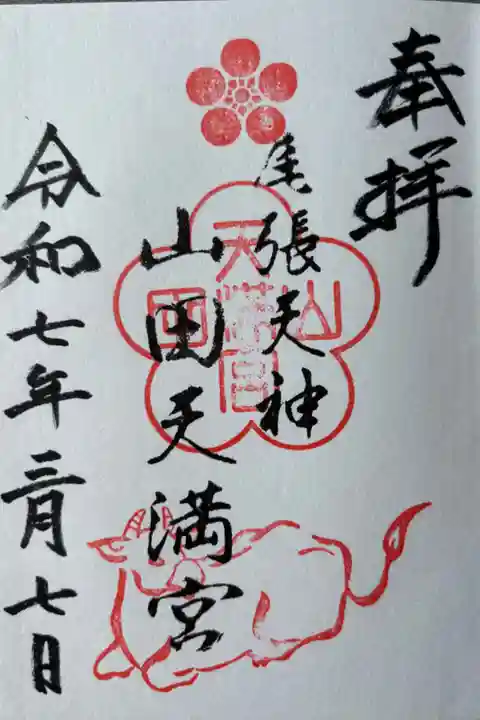 奉拝
尾張天神
山田天満宮
令和七年三月七日
山田
天満宮